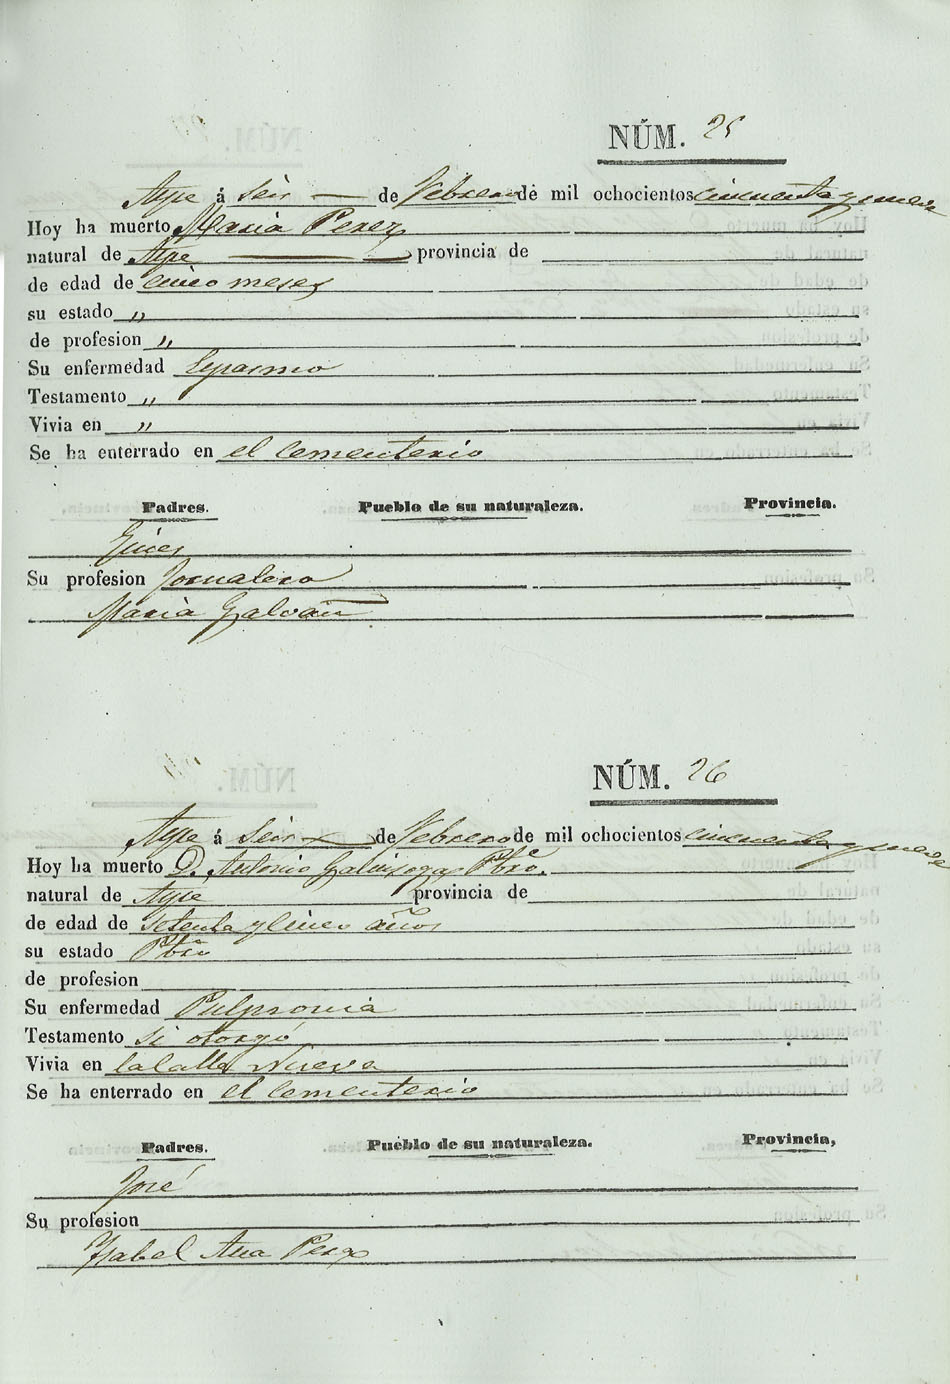 NÚM. 25
Aspe á seis de Febrero de mil ochocientos cincuenta y nueve
Hoy ha muerto Maria Perez
natural de Aspe provincia de
de edad de cinco meses
su estado „
de profesion „
Su enfermedad Espasmo
Testamento „
Vivia en „
Se ha enterrado en el Cementerio
Padres. Pueblo de su naturaleza. Provincia.
Gines
Su profesion Jornalero
Maria Galvañ
NÚM. 26
Aspe á seis de Febrero de mil ochocientos cincuenta y nueve
Hoy ha muerto D. Antonio Pbro.
natural de Aspe provincia de
de edad de setenta y cinco años
su estado Pbro
de profesion
Su enfermedad Pulmonia
Testamento si otorgó
Vivia en la Calle Nueva
Se ha enterrado en el Cementerio
Padres. Pueblo de su naturaleza. Provincia,
José
Su profesion
Ysabel Ana